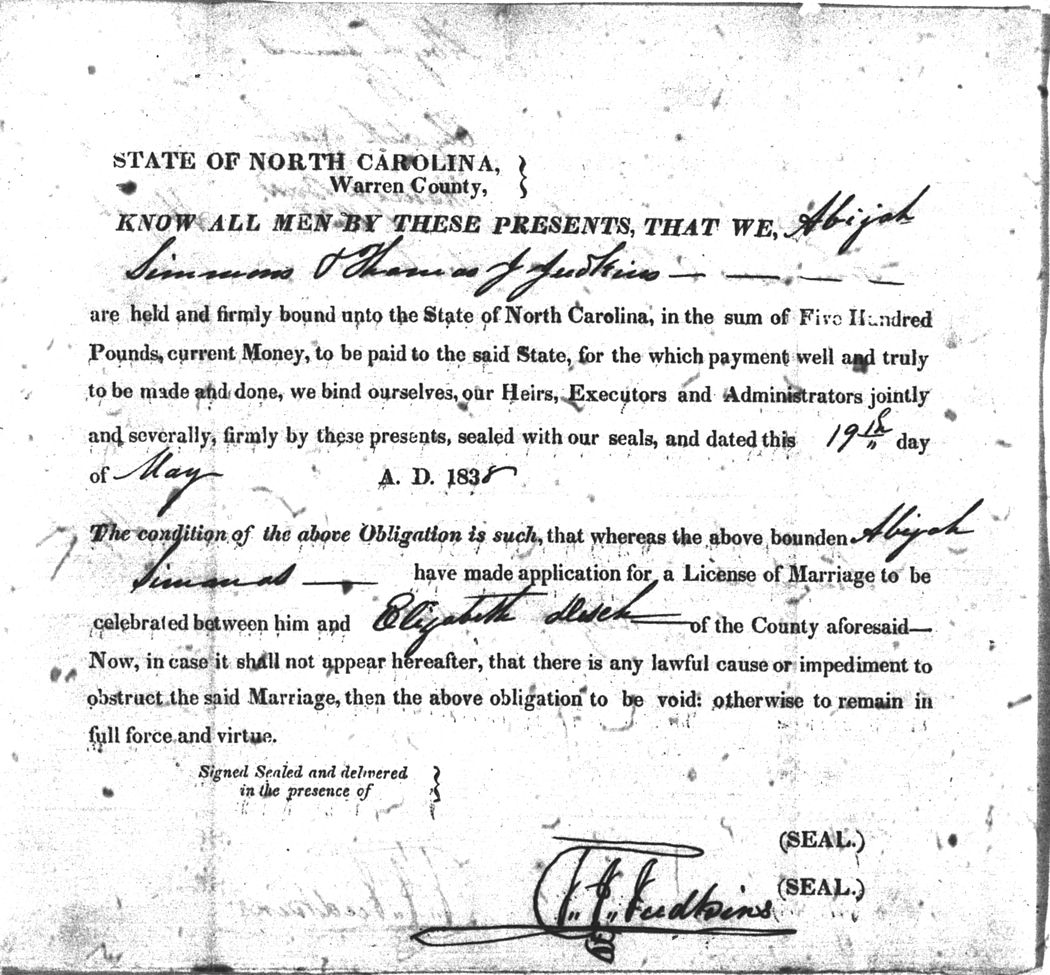 STATE OF NORTH CAROLINA,
Warren County,
KNOW ALL MEN BY THESE PRESENTS, THAT WE, Abijah
Simmons & Thomas J Judkins — — — —
are held and firmly bound unto the State of North Carolina, in the sum of Five Hundred
Pounds, current Money, to be paid to the said State, for the which payment well and truly
to be made and done, we bind ourselves, our Heirs, Executors and Administrators jointly
and severally, firmly by these presents, sealed with our seals, and dated this 19th day
of May A. D. 1838
The condition of the above Obligation is such, that whereas the above bounden Abijah
Simmons — have made application for a License of Marriage to be
celebrated between him and Elizabeth — of the County aforesaid—
Now, in case it shall not appear hereafter, that there is any lawful cause or impediment to
obstruct the said Marriage, then the above obligation to be void: otherwise to remain in
full force and virtue.
Signed Sealed and delivered
in the presence of
(SEAL.)
T. J. Judkins (SEAL.)